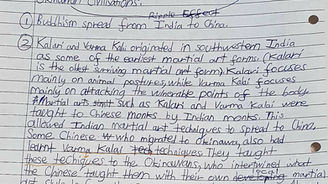 Okinawan Civilisations.
Ripple Effect
① Buddhism spread from India to China.
② Kalari and Varma Kalai originated in southwestern India
as some of the earliest martial art forms. (Kalari
is the oldest surviving martial art form) Kalari focuses
mainly on animal postures, while Varma Kalai focuses
mainly on attacking the vulnerable points of the body.
Martial arts such as Kalari and Varma Kalai were
taught to Chinese monks by Indian monks. This
allowed Indian martial art techniques to spread to China.
Some Chinese who migrated to Okinawa, also had
learnt Varma Kalai techniques They taught
these techniques to the Okinawans, who intertwined what
the Chinese taught them with their own local developing martial